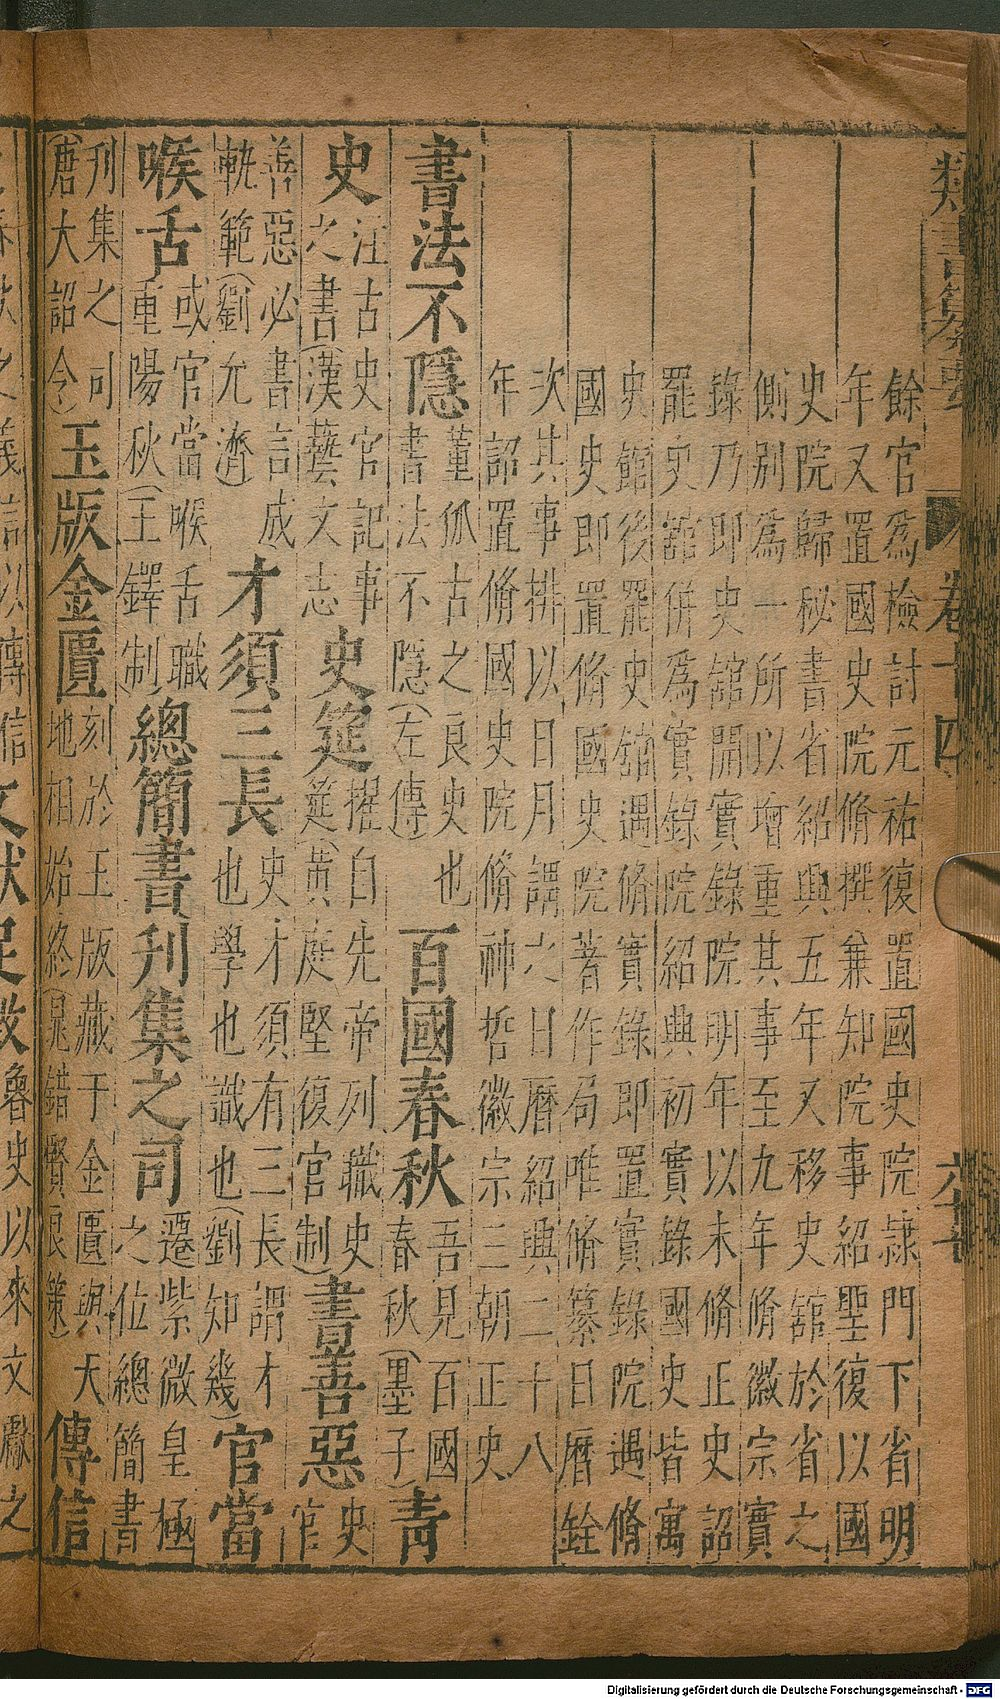 類書纂要 卷十四
餘官爲檢討元祐復置國史院隷門下省明
年又置國史院脩撰兼知院事紹聖復以國
史院歸秘書省紹興五年又移史舘於省之
側别爲一所以增重其事至九年脩徽宗實
錄乃即史舘開實錄院明年以未脩正史詔
罷史舘併爲實錄院紹興初實錄國史皆寓
史館後罷史舘遇脩實錄即置實錄院遇脩
國史即置脩國史院著作局唯脩纂日曆銓
次其事排以日月謂之日曆紹興二十八
年詔置脩國史院脩神哲徽宗三朝正史
書法不隱 董狐古之良史也書法不隱(左傳) 百國春秋 吾見百國春秋(墨子) 青
史 注古史官記事之書(漢藝文志) 史筵 擢自先帝列職史筵(黄庭堅復官制) 書善惡 史官
善惡必書言成軌範(劉允濟) 才須三長 史才須有三長謂才也學也識也(劉知幾) 官當
喉舌 或官當喉舌職重陽秋(王鐸制) 總簡書刊集之司 遷紫微皇極之位總簡書
刊集之司(唐大詔令) 玉版金匱 刻於玉版藏于金匱與天地相始終(晁錯賢良策) 傳信
春秋之義信以傳信 文獻足徵 魯史以來文獻之
Digitalisierung gefördert durch die Deutsche Forschungsgemeinschaft - DFG